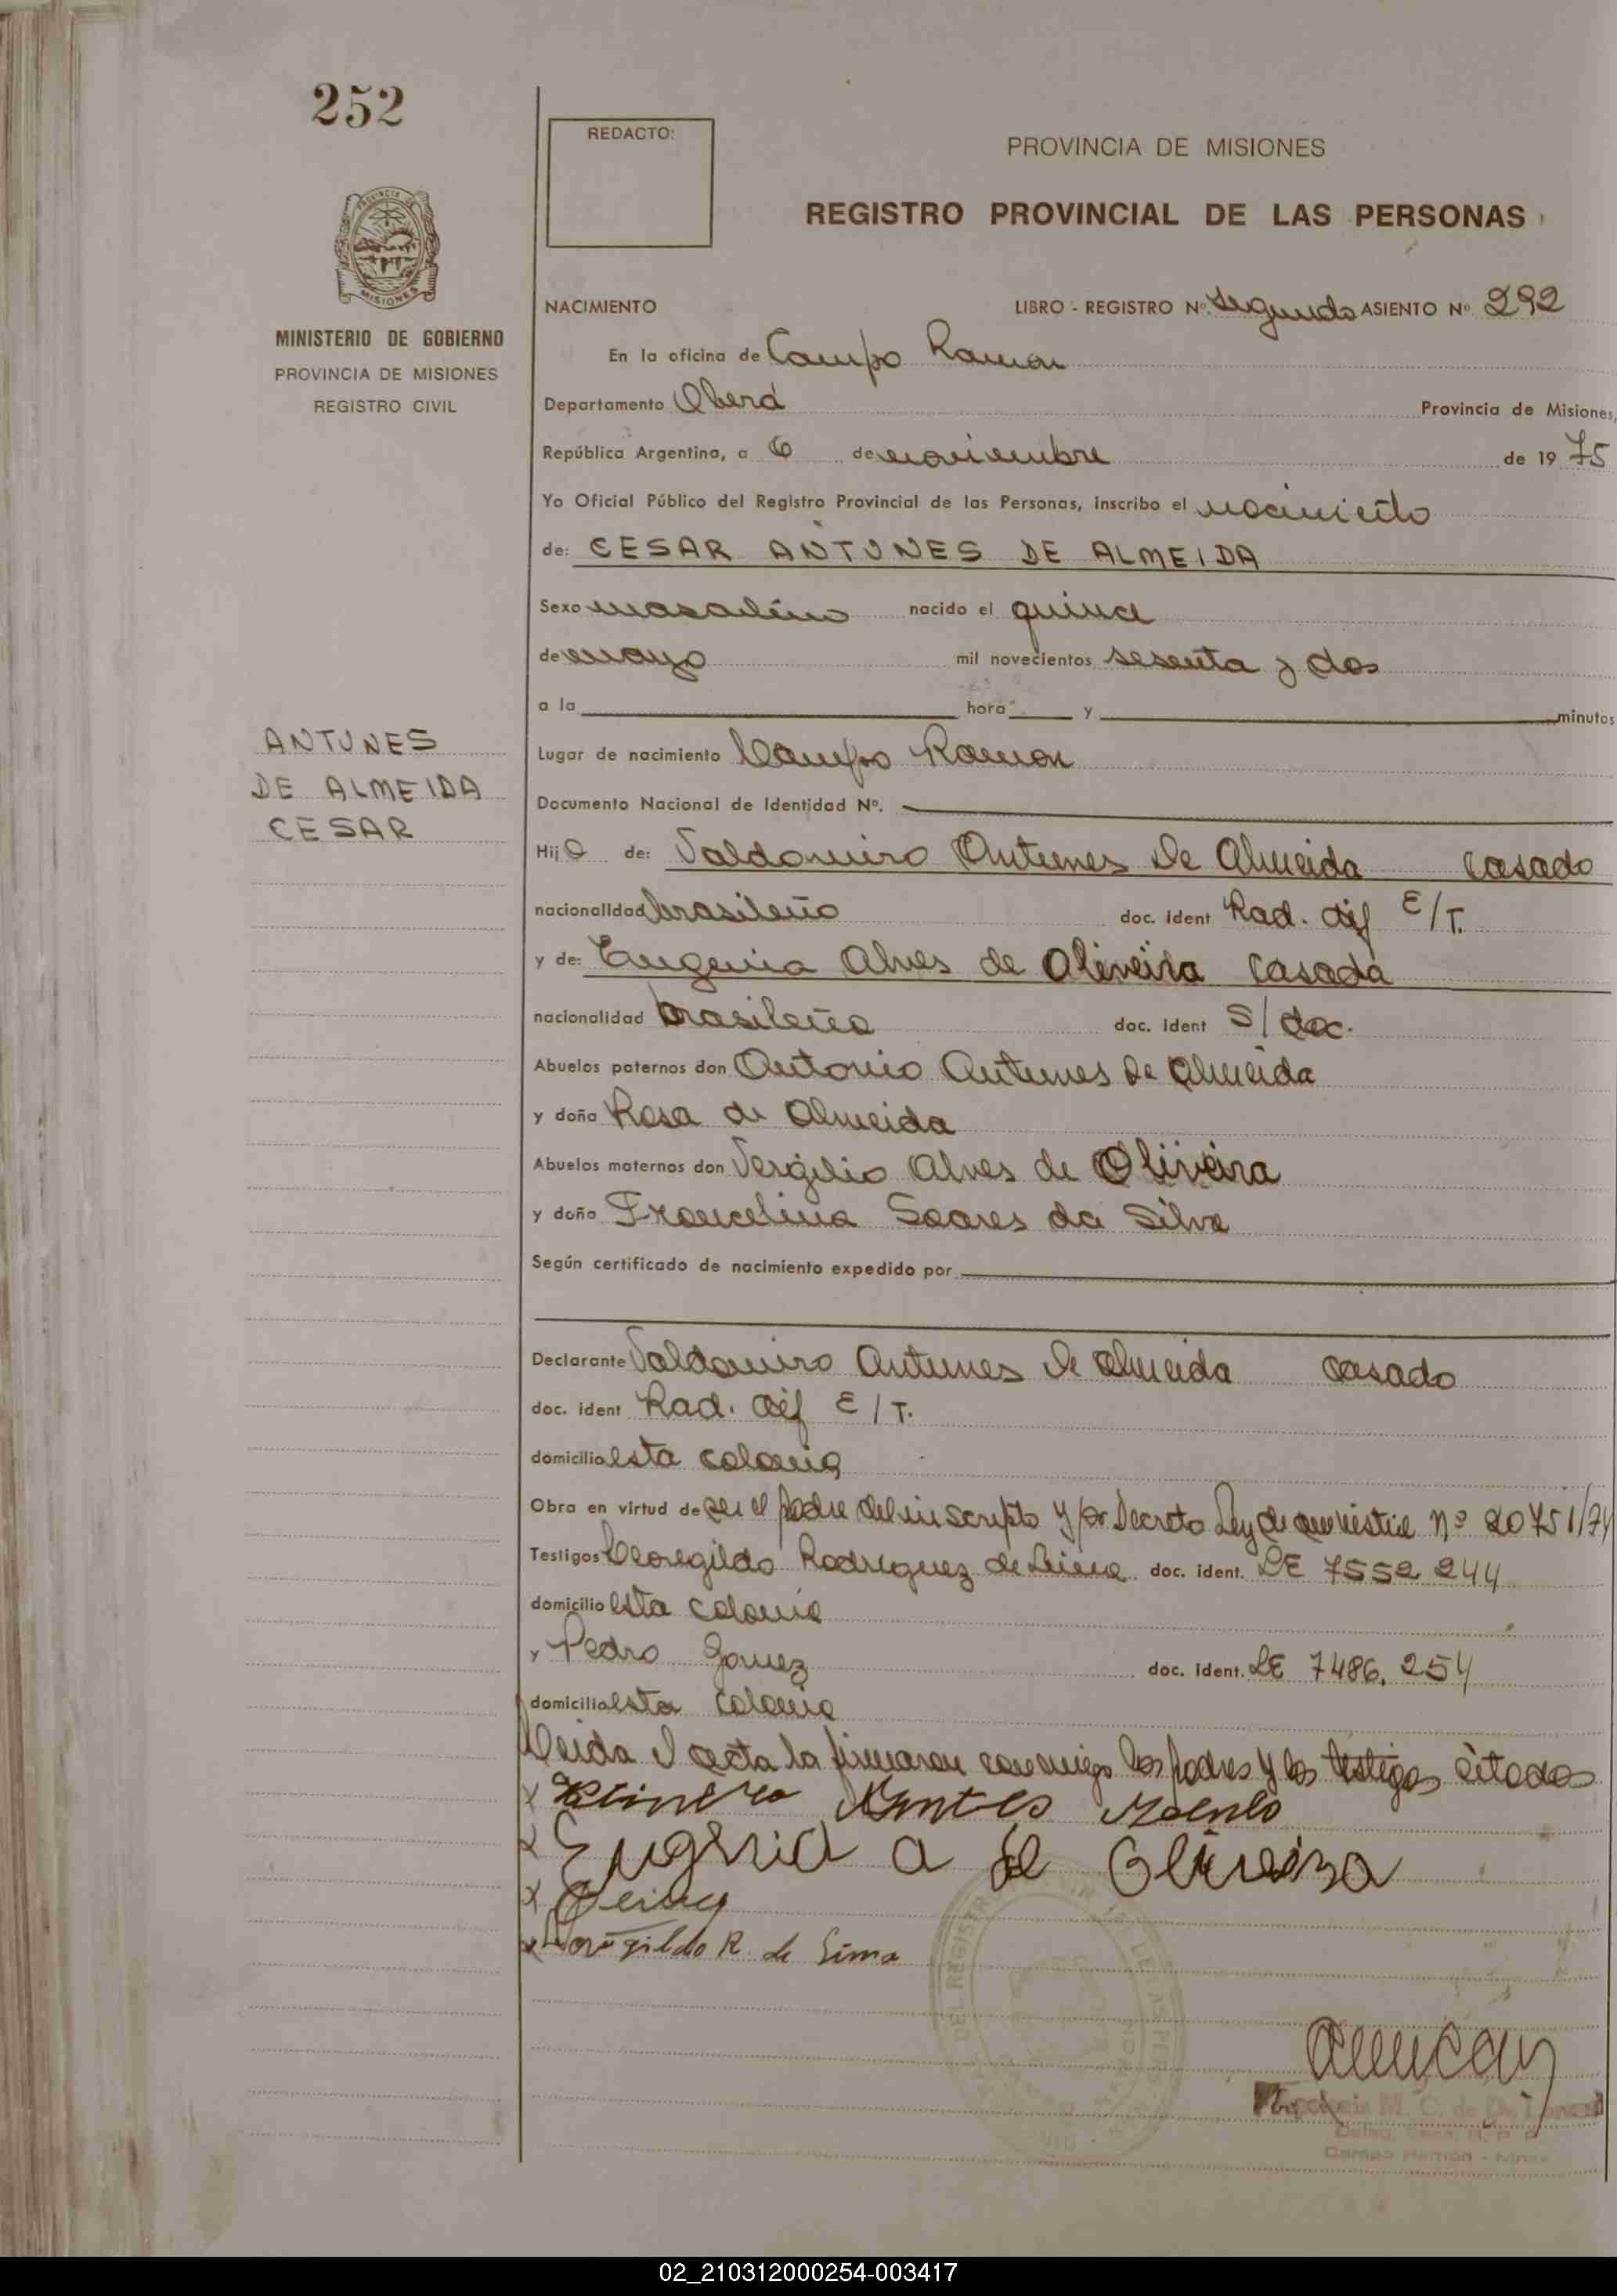 252
REDACTO:
PROVINCIA DE MISIONES
REGISTRO PROVINCIAL DE LAS PERSONAS
MISIONES
MINISTERIO DE GOBIERNO
PROVINCIA DE MISIONES
REGISTRO CIVIL
NACIMIENTO LIBRO - REGISTRO Nº. Segundo ASIENTO Nº 292
En la oficina de Campo Ramon
Departamento Oberá Provincia de Misiones,
República Argentina, a 6 de noviembre de 19 75
Yo Oficial Público del Registro Provincial de las Personas, inscribo el nacimiento
de: CESAR ANTUNES DE ALMEIDA
Sexo masculino nacido el quince
de mayo mil novecientos sesenta y dos
a la hora y minutos
ANTUNES
DE ALMEIDA
CESAR
Lugar de nacimiento Campo Ramon
Documento Nacional de Identidad Nº.
Hijo de: Valdomiro Antunes De Almeida casado
nacionalidad brasileño doc. ident Rad. dif E/T.
y de: Eugenia Alves de Oliveira casada
nacionalidad brasileña doc. ident S/doc.
Abuelos paternos don Antonio Antunes De Almeida
y doña Rosa de Almeida
Abuelos maternos don Vergilio Alves de Oliveira
y doña Francelina Soares da Silva
Según certificado de nacimiento expedido por
Declarante Valdomiro Antunes De Almeida casado
doc. ident Rad. dif E/T.
domicilio esta colonia
Obra en virtud de ser el padre del inscripto y por Decreto Ley de amnistia nº 20751/74
Testigos Rodriguez de Lima doc. ident. LE 7552 244
domicilio esta colonia
y Pedro Gomez doc. ident. LE 7486.254
domicilio esta colonia
Leida el acta la firmaron conmigo los padres y los testigos citados
x
x Eugenia a de Oliveira
x
x R. de Lima
M. C. de
Campo Ramón
02_210312000254-003417